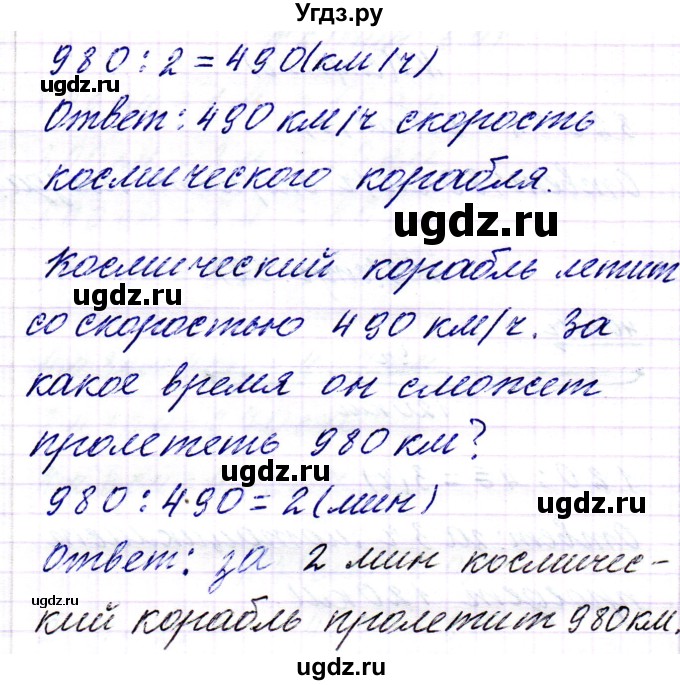 Угдз.ру
980 : 2 = 490 (км/ч)
Ответ: 490 км/ч скорость
космического корабля.
ugdz.ru
ugdz.ru
Космический корабль летит
ugdz.ru
со скоростью 490 км/ч. За
какое время он сможет
пролететь 980 км?
ugdz.ru
980 : 490 = 2 (мин)
ugdz.ru
Ответ: за 2 мин космичес-
ugdz.ru
ugdz.ru
кий корабль пролетит 980 км.
ugdz.ru